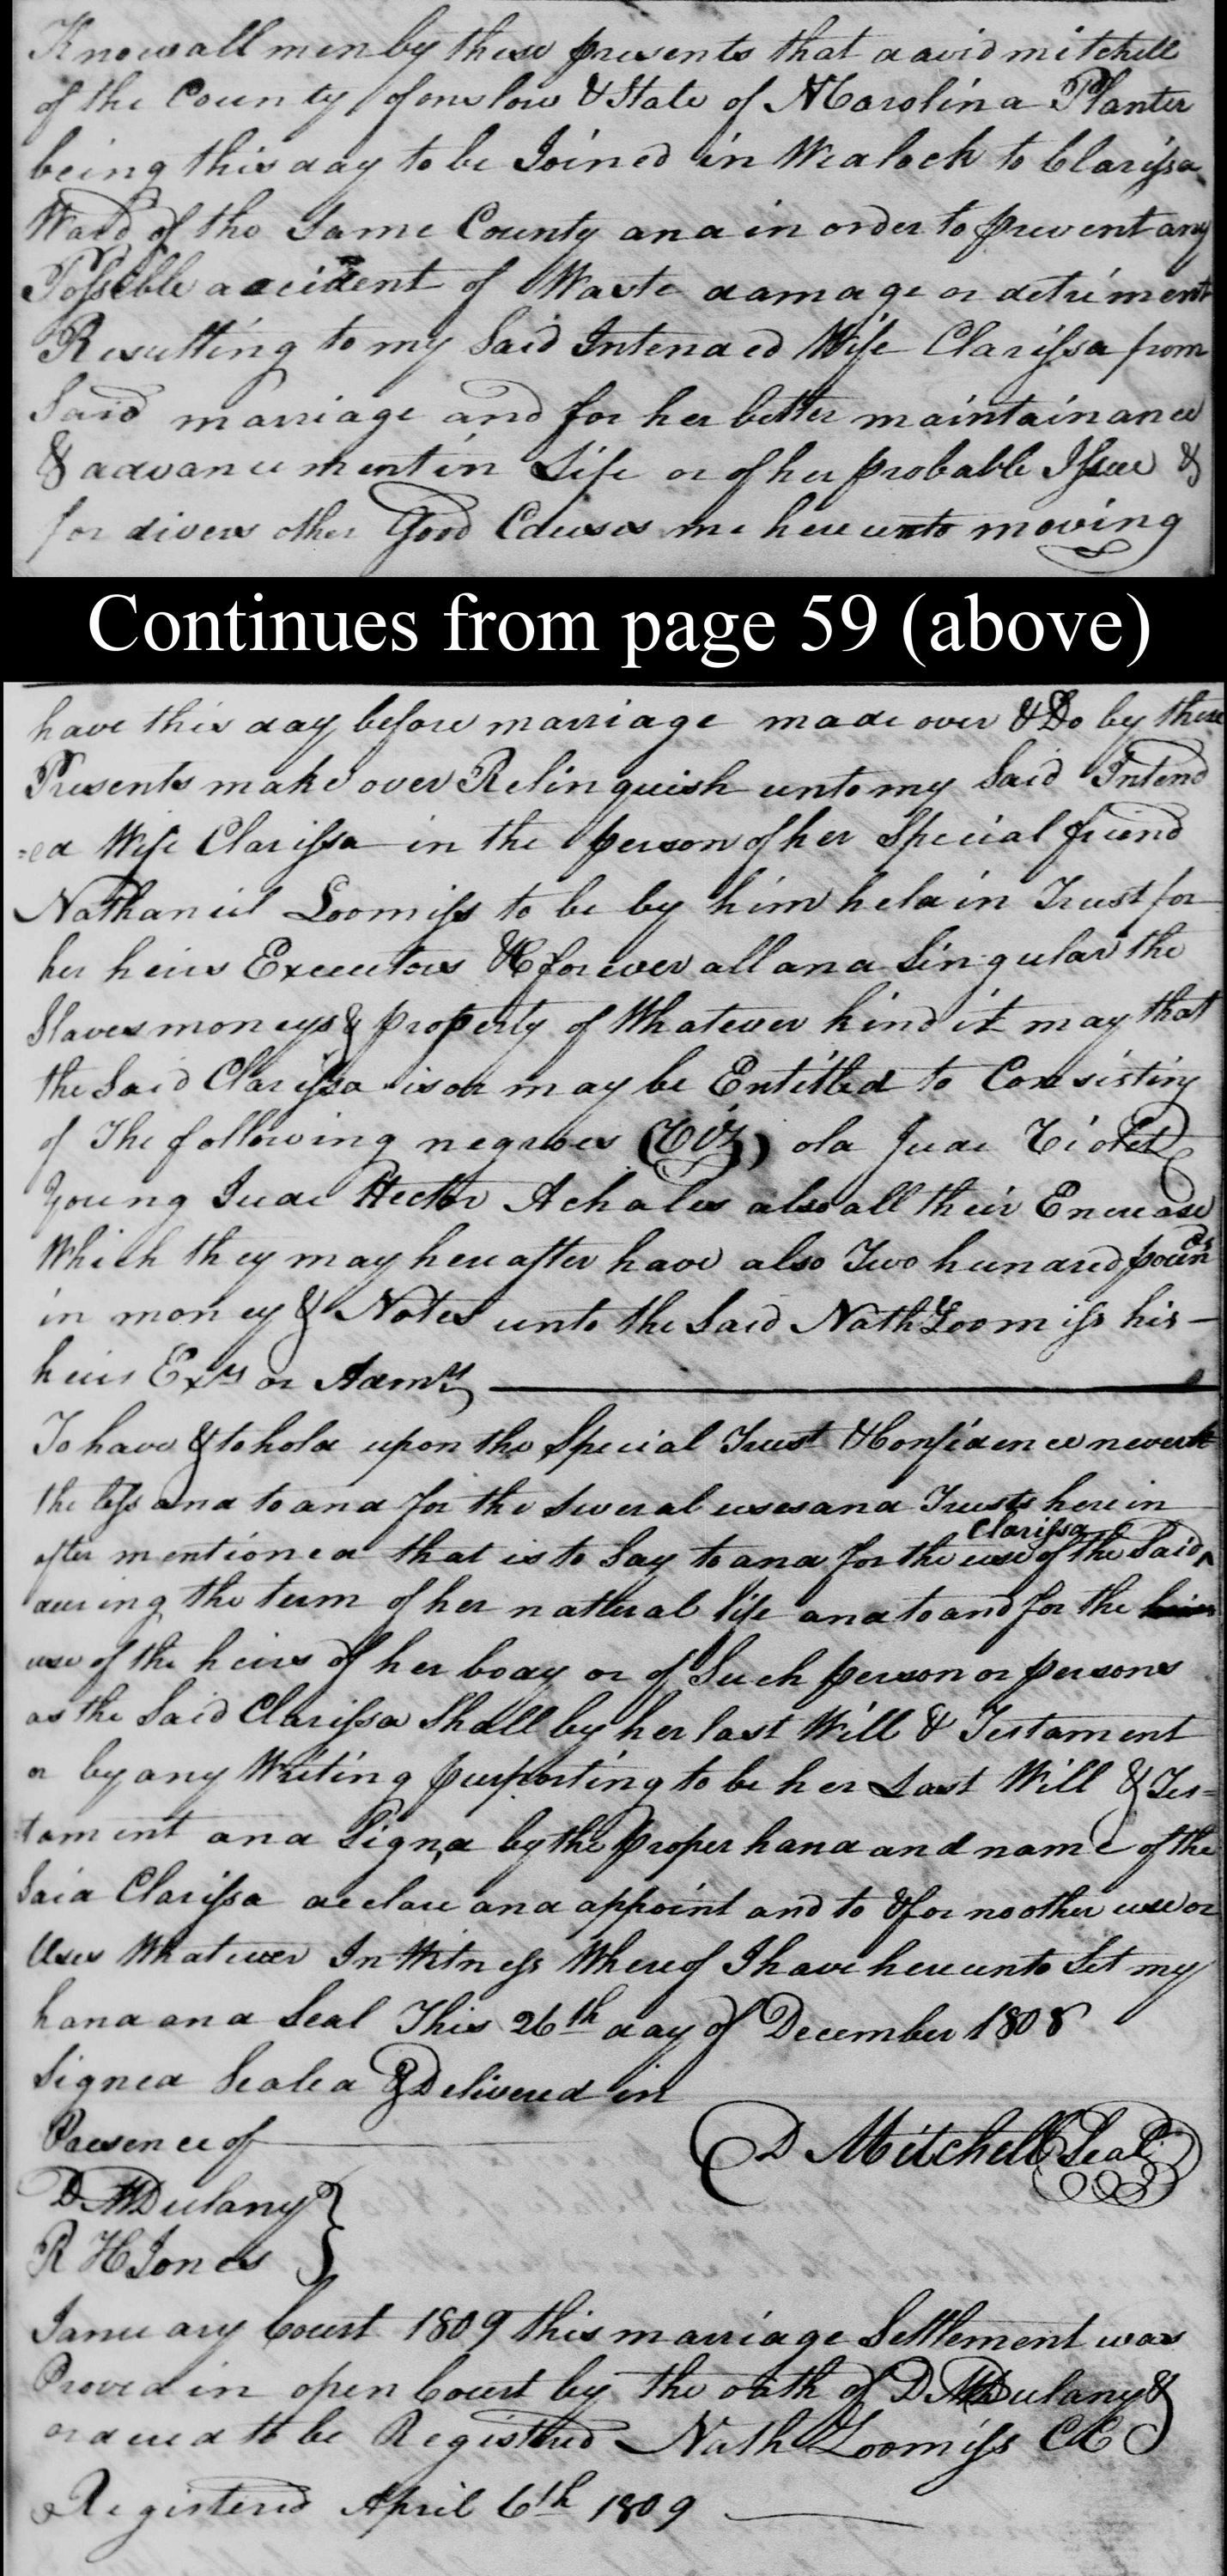 Know all men by these presents that david mitchell
of the County of onslow & State of N Carolina Planter
being this day to be Joined in Wedlock to Clarissa
Ward of the Same County and in order to prevent any
Possible accident of Waste damage or detriment
Resulting to my Said Intended Wife Clarissa from
Said marriage and for her better maintainance
& advancement in Life or of her probable Issue &
for divers other Good Causes me hereunto moving
Continues from page 59 (above)
have this day before marriage made over & Do by these
Presents make over Relinquish unto my Said Intend
=ed Wife Clarissa in the person of her Special friend
Nathaniel Loomiss to be by him held in Trust for
her heirs Executors &C forever all and Singular the
Slaves moneys & property of Whatever kind it may that
the Said Clarissa is or may be Entitled to Consisting
of The following negroes (Viz) old Jude Violet
Young Jude Hector Achales also all their Encrease
Which they may hereafter have also Two hundred pounds
in money & Notes unto the Said Nath Loomiss his
heirs Exrs or Admrs
To have & to hold upon the Special Trust & Confidence neverth
the less and to and for the Several uses and Trusts herein
after mentioned that is to Say to and for the use of the Said ^ Clarissa
during the term of her natteral life and to and for the
use of the heirs of her body or of Such person or persons
as the Said Clarissa Shall by her last Will & Testament
or by any Writing purporting to be her Last Will & Tes=
tament and Signd by the proper hand and name of the
Said Clarissa declare and appoint and to & for no other use or
Uses Whatever In Witness Whereof I have hereunto Set my
hand and Seal This 26th day of December 1808
Signed Sealed & Delivered in
Presence of
D Mitchell Seal
D M Dulany
R H Jones
January Court 1809 this marriage Settlement was
Proved in open Court by the oath of D M Dulany &
ordered to be Registred Nath Loomiss CC
Registered April 6th 1809